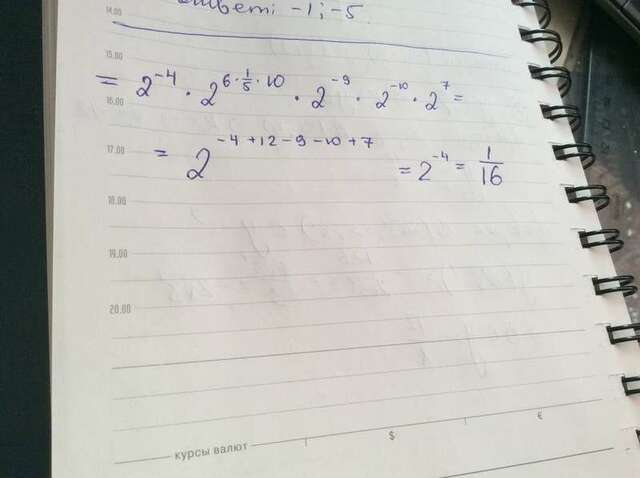 14.00 Ответ: -1; -5.
15.00
= 2⁻⁴ · 2^(6·1/5·10) · 2⁻⁹ · 2⁻¹⁰ · 2⁷ =
16.00
17.00 = 2^(-4+12-9-10+7) = 2⁻⁴ = 1/16
18.00
19.00
20.00
курсы валют $ €